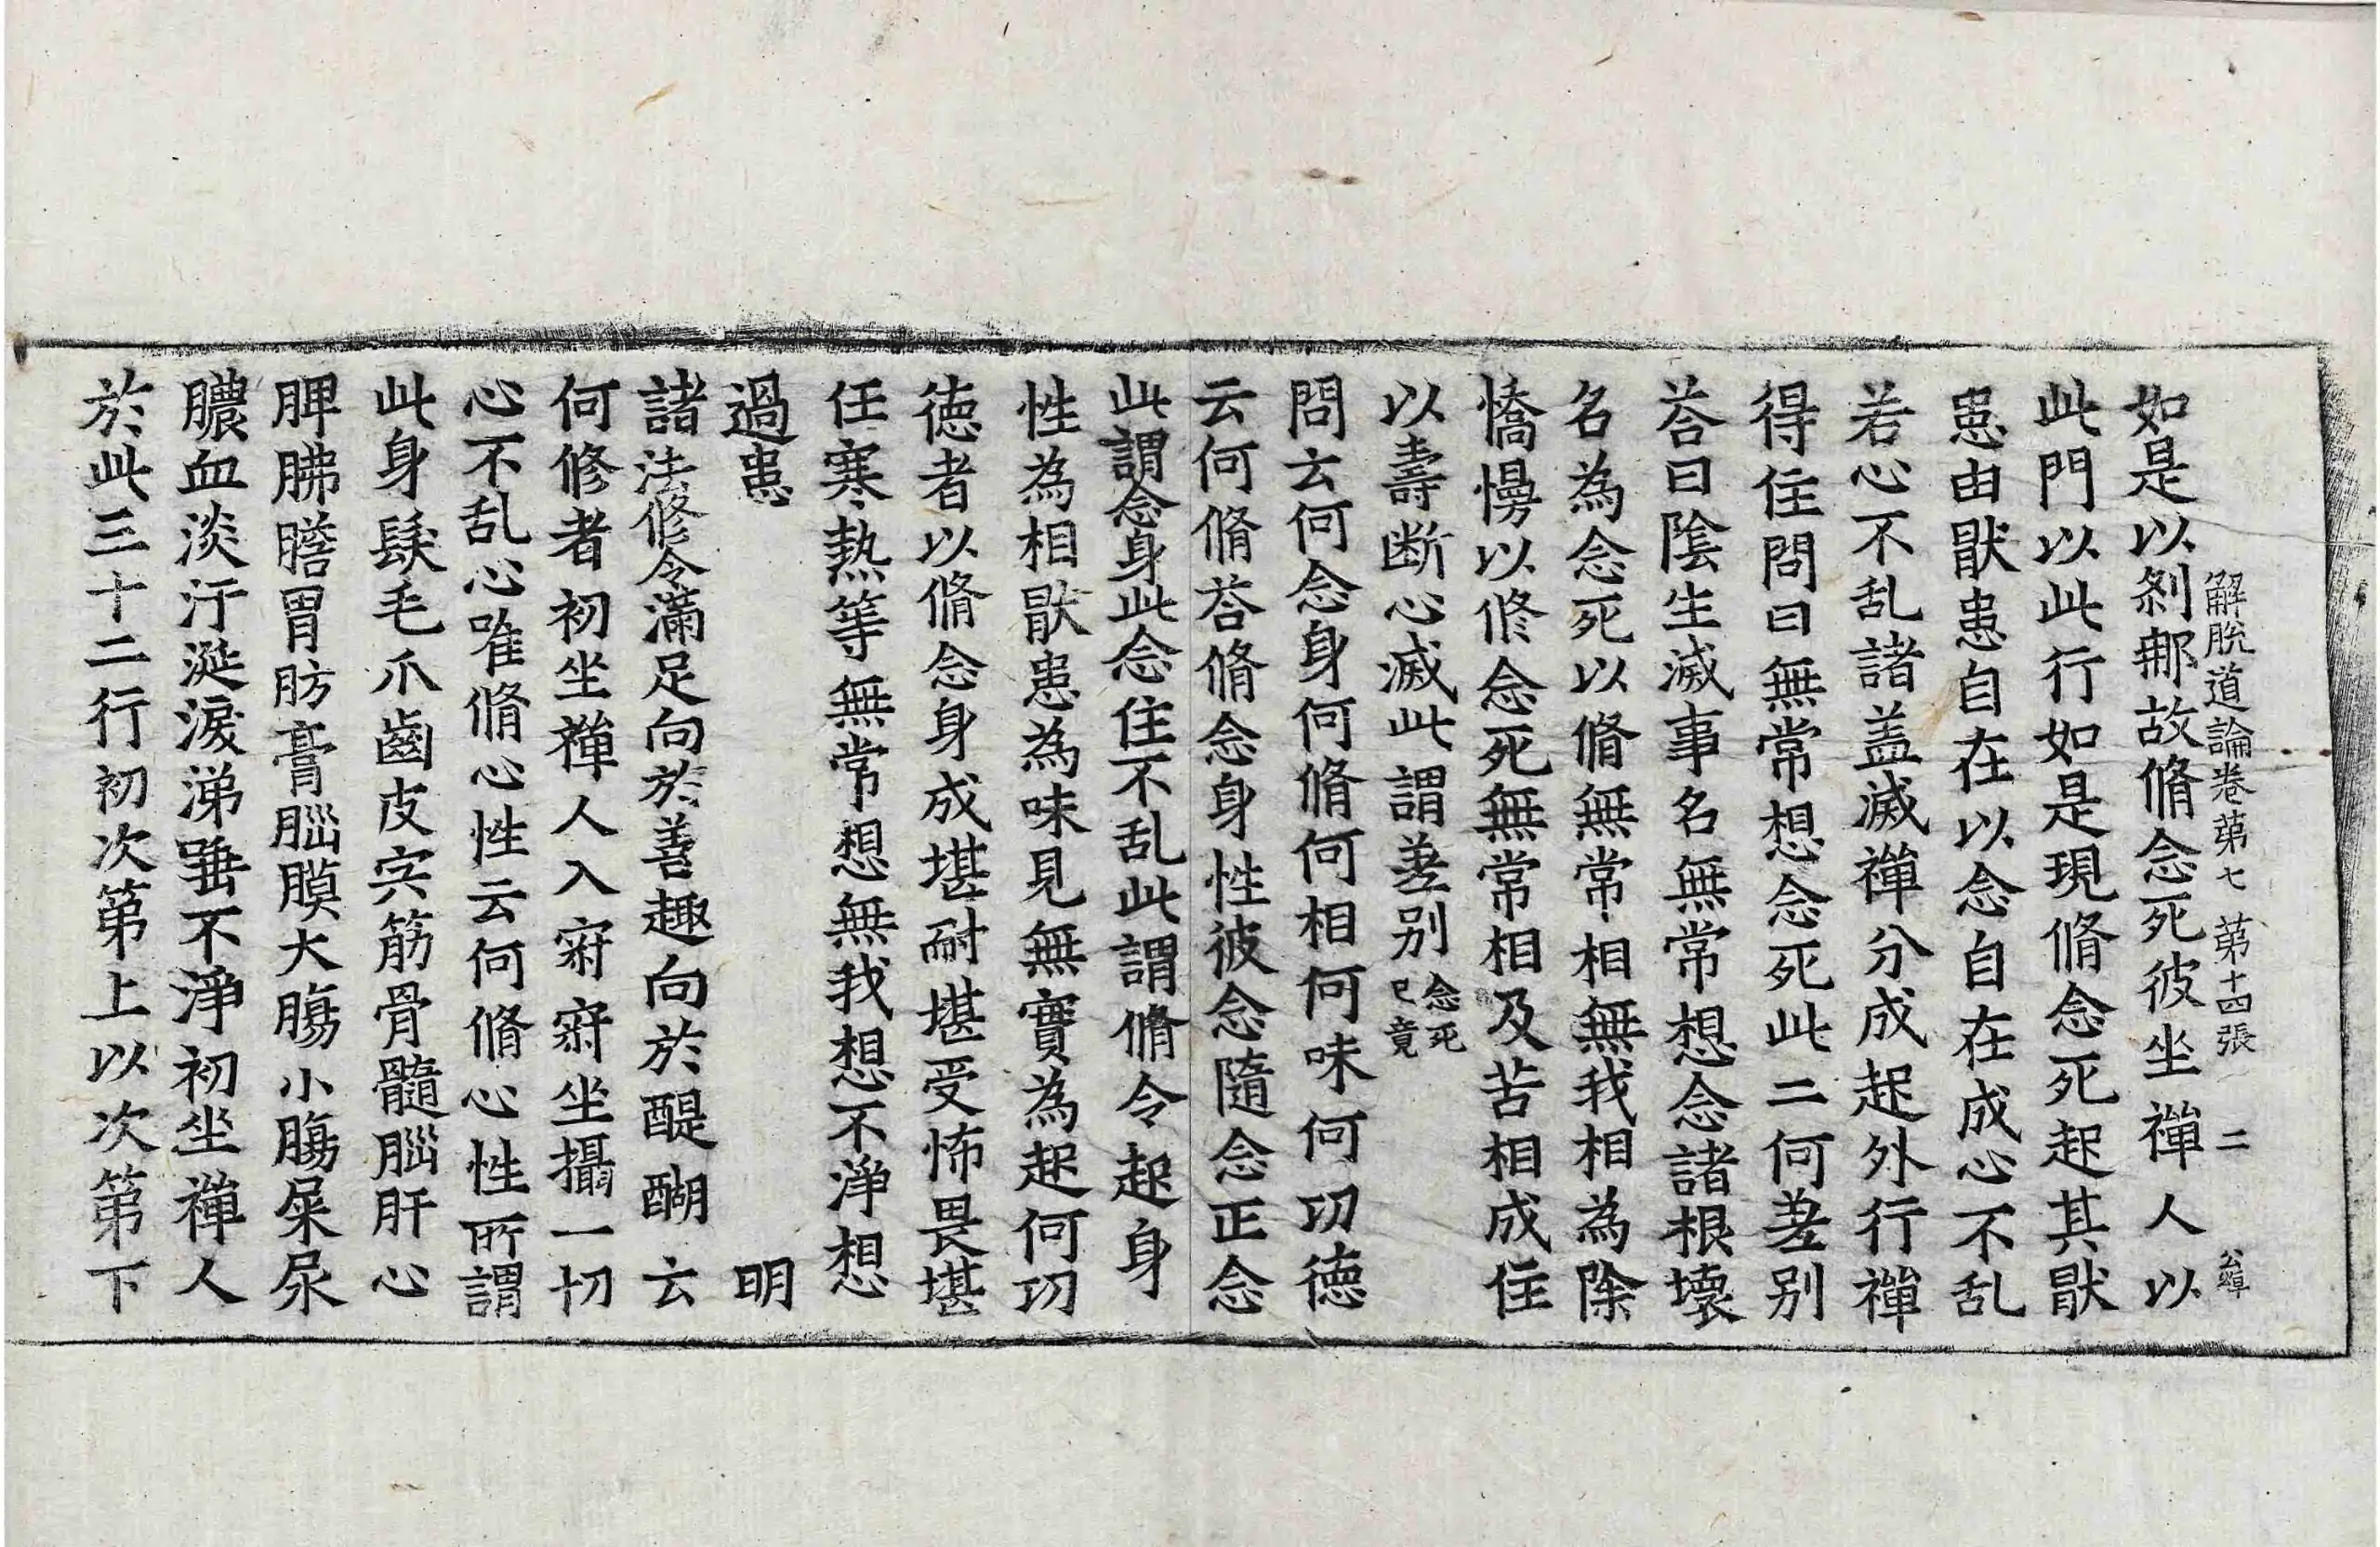 解脫道論卷第七 第十四張 二
如是以刹那故脩念死彼坐禪人以
此門以此行如是現脩念死起其猒
患由猒患自在以念自在成心不乱
若心不乱諸盖滅禪分成起外行禪
得住問曰無常想念死此二何差别
荅曰陰生滅事名無常想念諸根壞
名為念死以脩無常相無我相為除
憍慢以修念死無常相及苦相成住
以壽断心滅此謂差别 念死已竟
問云何念身何脩何相何味何功德
云何脩荅脩念身性彼念隨念正念
此謂念身此念住不乱此謂脩令起身
性為相猒患為味見無實為起何功
德者以脩念身成堪耐堪受怖畏堪
任寒熱等無常想無我想不淨想
過患 明
諸法修令滿足向於善趣向於醍醐云
何修者初坐禪人入寂寂坐攝一切
心不乱心唯脩心性云何脩心性所謂
此身髮毛爪齒皮宍筋骨髓腦肝心
脾胏膽胃肪膏腦膜大膓小膓屎尿
膿血淡汙涎淚涕唾不淨初坐禪人
於此三十二行初次第上以次第下